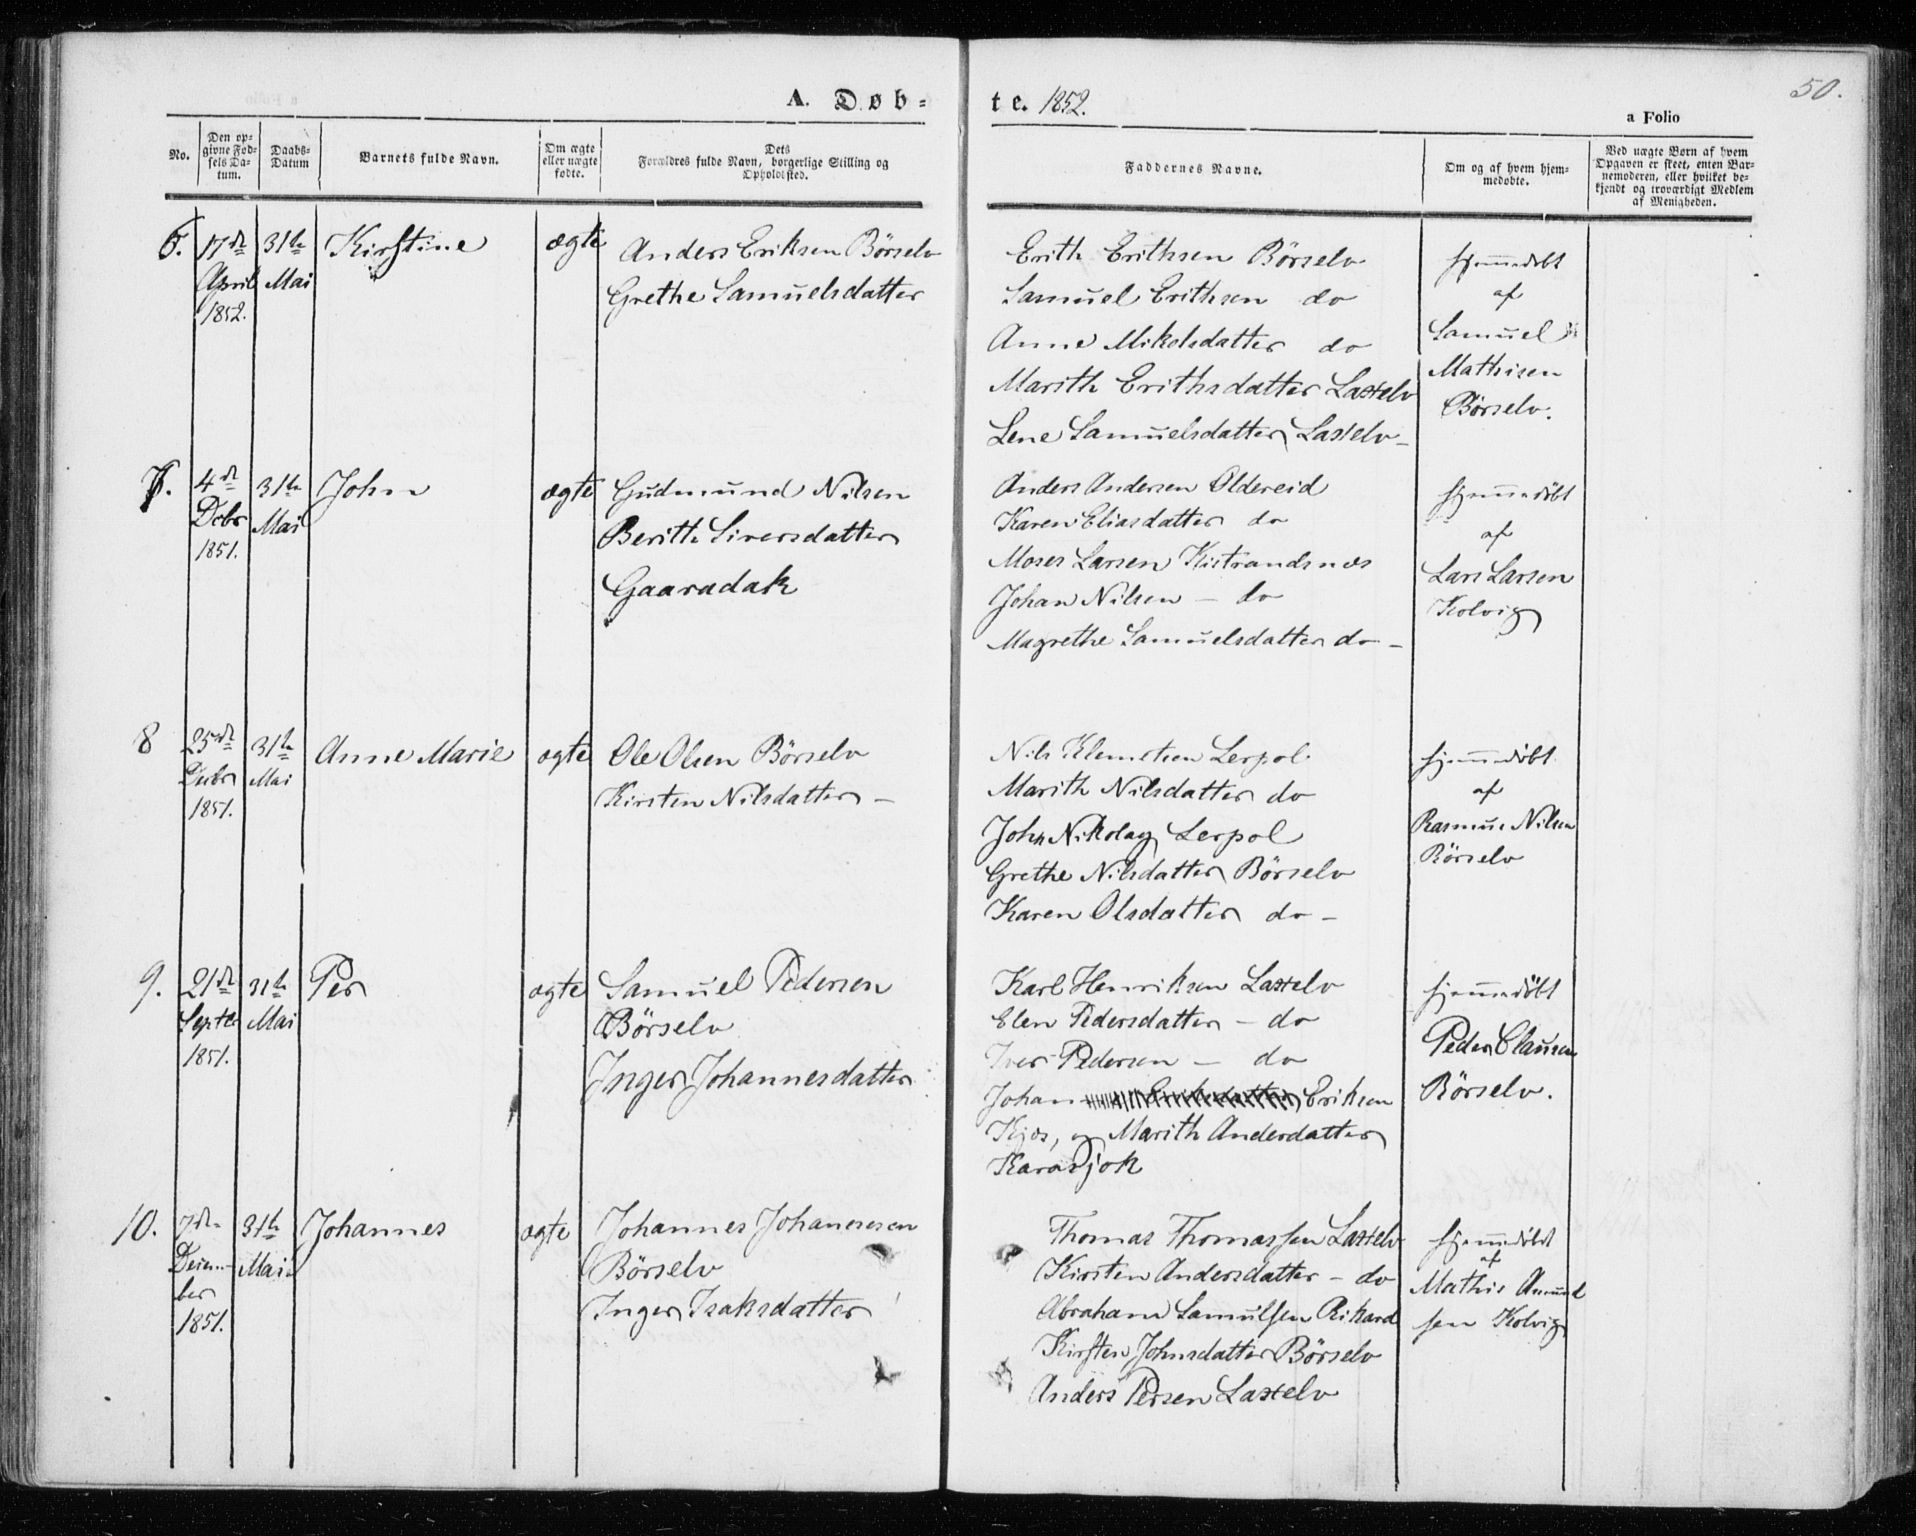 50.
A. Døb-
te. 1852.
a Folio
No.
Den op-
givne Fød-
sels Da-
tum.
Daabs-
Datum
Barnets fulde Navn.
Om ægte
eller uægte
fødte.
Dets
Forældres fulde Navn, borgerlige Stilling og
Opholdssted.
Faddernes Navne.
Om og af hvem hjem-
medøbte.
Ved uægte Børn af hvem
Opgaven er skeet, enten Bar-
nemoderen, eller hvilket be-
kjendt og troværdigt Medlem
af Menigheden.
6.
17de
April
1852.
31te
Mai
Kirstine
ægte
Anders Eriksen Börselv
Grethe Samuelsdatter
Erith Erithsen Börselv
Samuel Erithsen do
Anne Mikelsdatter do
Marith Erithsdatter Laxelv
Lene Samuelsdatter Laxelv-
Hjemmedøbt
af
Samuel
Mathisen
Börselv.
7.
4de
Dcbr
1851.
31te
Mai
John
ægte
Gudmund Nilsen
Berith Siversdatter
Gaaradak
Anders Andersen Oldereid
Karen Eliasdatter do
Moses Larsen Kistrandsnæs
Johan Nilsen - do
Magrethe Samuelsdatter do-
hjemmedöbt
af
Lars Larsen
Kolvig
8
25de
Decbr
1851.
31te
Mai
Anne Marie
ægte
Ole Olsen Börselv
Kirsten Nilsdatter -
Nils Klemetsen Lerpol
Marith Nilsdatter do
John Nikolay Lerpol
Grethe Nilsdatter Börselv
Karen Olsdatter do-
hjemmedöbt
af
Rasmus Nilsen
Börselv
9.
21de
Septbr
1851.
31te
Mai
Per
ægte
Samuel Pedersen
Börselv
Inger Johannesdatter
Karl Henriksen Laxelv
Elen Pedersdatter - do
Iver Pedersen - do
Johan Eriksen
Kjæs, og Marith Andersdatter
Karasjok
hjemmedöbt
Peder Clausen
Börselv.
10.
7de
Decem-
ber
1851.
31te
Mai
Johannes
ægte
Johannes Johannesen
Börselv
Inger Isaksdatter
Thomas Thomassen Laxelv
Kirsten Andersdatter - do
Abraham Samuelsen Rikard
Kirsten Johnsdatter Börselv
Anders Persen Laxelv
hjemmedöbt
af
Mathis Amund
sen Kolvig